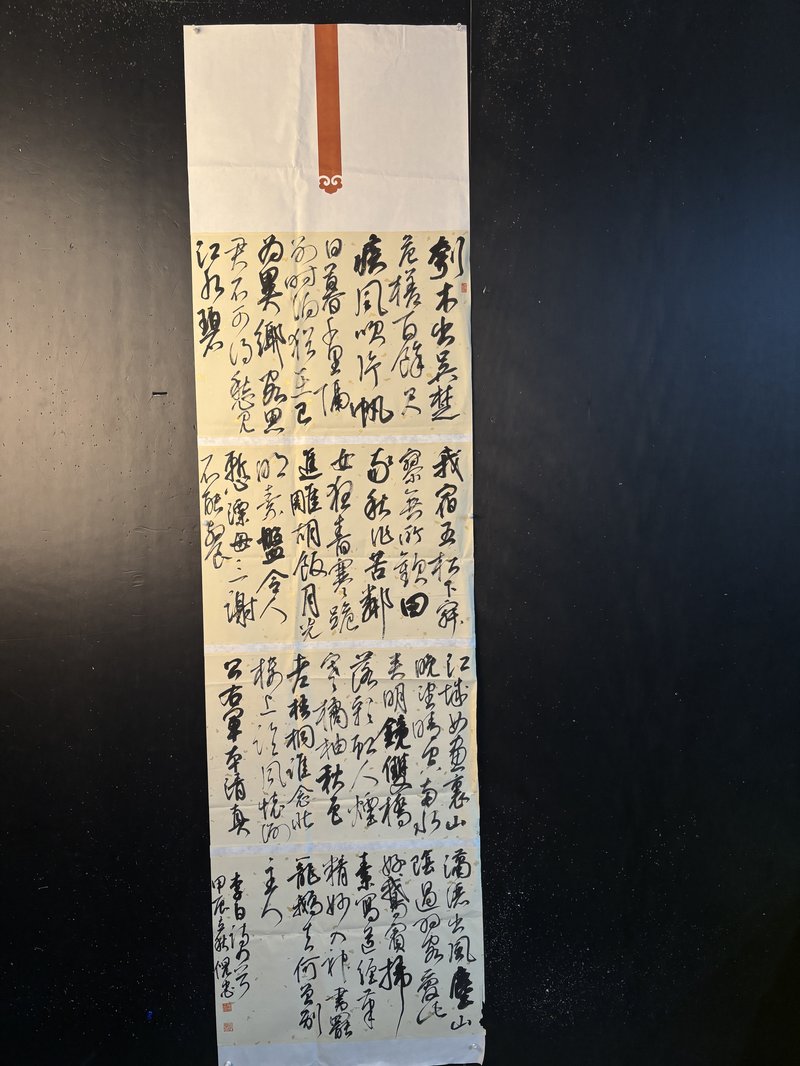 刳木出吳楚
危槎百餘尺
疾風吹片帆
日暮千里隔
別時酒猶在已
為異鄉客思
君不可得愁見
江水碧
我宿五松下寂
寥無所歡田
家秋作苦鄰
女夜舂寒跪
進雕胡飯月光
明素盤令人
慙漂母三謝
不能餐
江城如畫裏山
晚望晴空兩水
夾明鏡雙橋
落彩虹人煙
寒橘柚秋色
老梧桐誰念北
樓上臨風懷謝
公右軍本清真
瀟洒出風塵山
陰過羽客愛此
好鵝賓掃
素寫道經筆
精妙入神書罷
籠鵝去何曾別
主人
李白詩四首
甲辰立秋